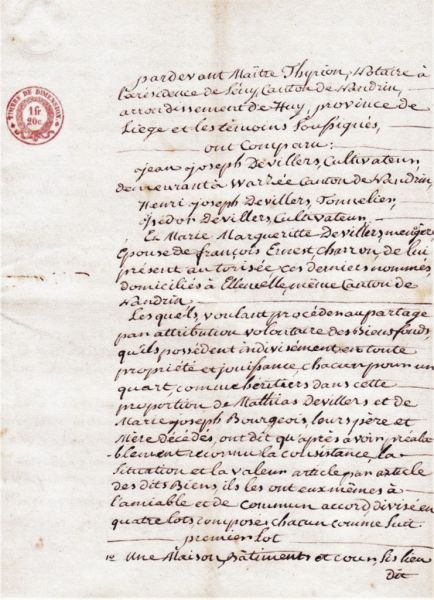 TIMBRE DE DIMENSION
1 fr
20c
pardevant Maître Thyrion, Notaire à
la résidence de Sény, Canton de Nandrin,
arrondissement de Huy, province de
Liège et les témoins Soussignés,
ont Comparu:
Jean Joseph Devillers, Cultivateur,
demeurant à Warzée Canton de Nandrin,
Henri Joseph Devillers, Tonnelier,
Isidor Devillers, Cultivateur,
Et Marie Margueritte Devillers, menagère
Epouse de françois Ernest, charron, de lui
présent autorisée ces derniers nommés
domiciliés à Ellemelle, même Canton de
Nandrin.
Lesquels, voulant procéder au partage
par attribution volontaire des Biens fonds,
qu'ils possèdent indivisément en toute
propriété et jouissance, chacun pour un
quart, comme héritiers dans cette
proportion de Mathias Devillers et de
Marie Joseph Bourgeois, leurs père et
Mère décédés, ont dit qu'après avoir préala
-blement reconnu la consistance, la
Situation et la valeur article par article
des dits Biens, ils les ont eux mêmes à
l'amiable et de commun accord divisé en
quatre lots, composés, chacun comme Suit.
premier Lot
1° Une Maison, Bâtiments et cour, Sis lieu
dit